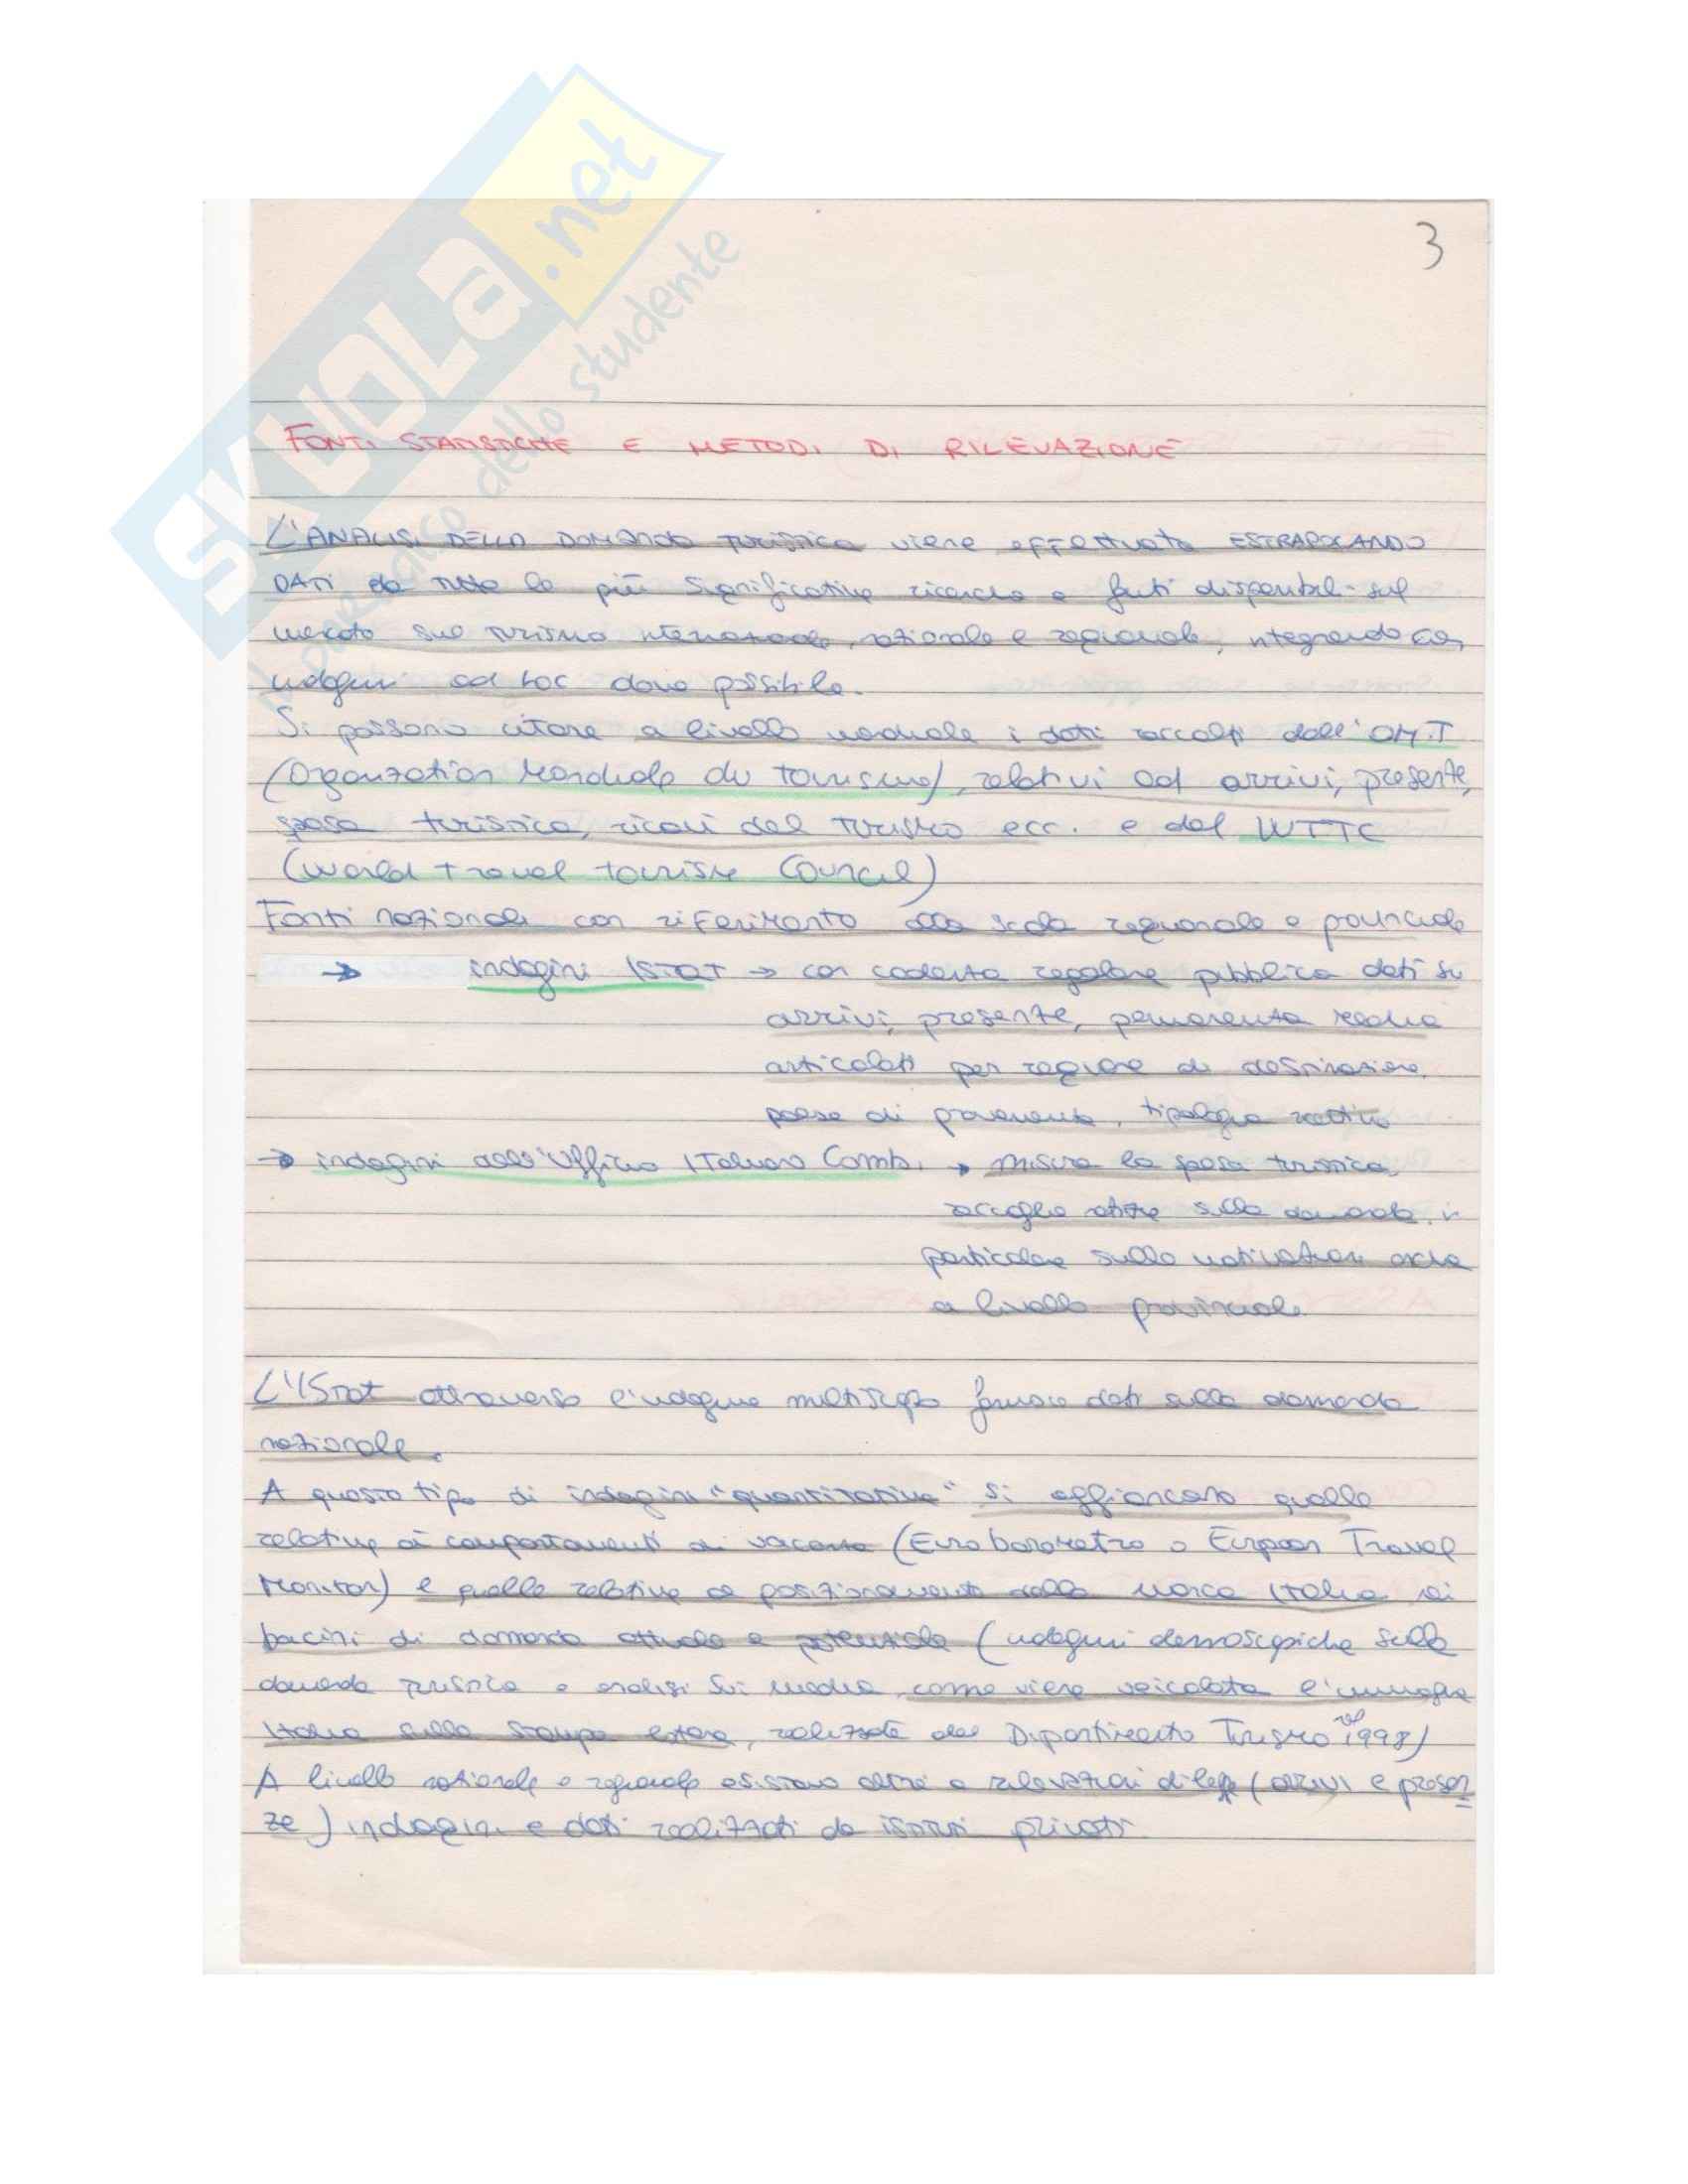 SKUOLA.net
il portale dello studente
3
FONTI STATISTICHE E METODI DI RILEVAZIONE
L'ANALISI DELLA DOMANDA TURISTICA viene effettuata ESTRAPOLANDO
DATI da tutte le più significative ricerche e fonti disponibili sul
mercato sul turismo internazionale, nazionale e regionale, integrando con
indagini ad hoc dove possibile.
Si possono citare a livello mondiale i dati raccolti dall'OM.T
(Organization Mondiale du tourisme), relativi ad arrivi, presenze,
spesa turistica, ricavi del turismo ecc. e del WTTC
(World travel tourism Council)
Fonti nazionali con riferimento alla scala regionale e provinciale
→ indagini ISTAT → con cadenza regolare pubblica dati su
arrivi, presenze, permanenza media
articolati per regione di destinazione
paese di provenienza, tipologia ricettiva
→ indagini dell'Ufficio Italiano Cambi → misura la spesa turistica,
raccoglie altre sulla domanda, in
particolare sulle motivazioni anche
a livello provinciale
L'Istat attraverso l'indagine multiscopo fornisce dati sulla domanda
nazionale.
A questo tipo di indagini "quantitative" si affiancano quelle
relative ai comportamenti di vacanza (Eurobarometro o European Travel
Monitor) e quelle relative al posizionamento della marca Italia nei
bacini di domanda attuale e potenziale (indagini demoscopiche sulla
domanda turistica e analisi sui media, come viene veicolata l'immagine
Italia sulla stampa estera, realizzate dal Dipartimento Turismo nel 1998)
A livello nazionale e regionale esistono oltre a rilevazioni di legge (arrivi e presen-
ze) indagini e dati realizzati da istituti privati.